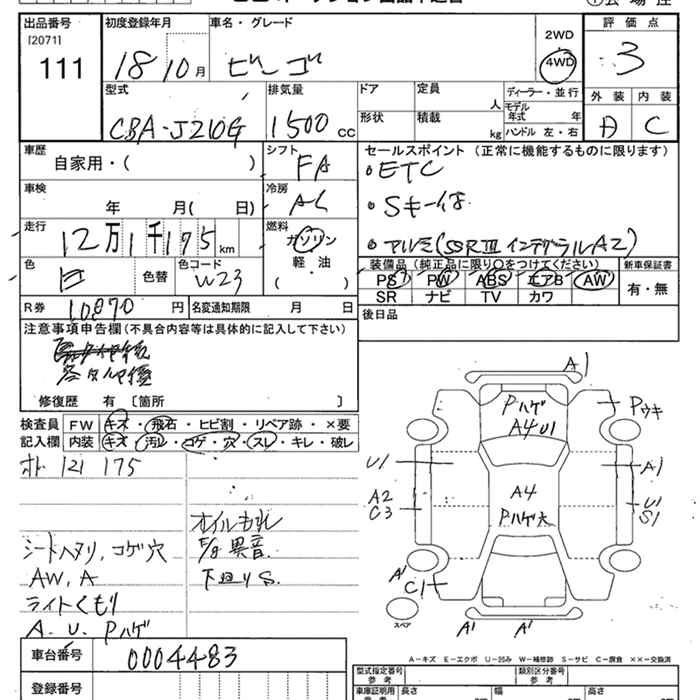 出品番号
[2071]
111
初度登録年月
18 10月
車名・グレード
ビーゴ
2WD
4WD
評価点
3
型式
CBA-J210G
排気量
1500 cc
ドア
定員
人
形状
積載
kg
ディーラー・並行
モデル年式 年
ハンドル 左・右
外装
内装
A
C
車歴
自家用・( )
シフト
FA
セールスポイント (正常に機能するものに限ります)
・ETC
・Sキー1ケ
・アルミ(SSRⅢ インテグラルA2)
車検
年 月( 日)
冷房
AC
走行
12万1千175km
燃料
ガソリン
軽・油
( )
色
白
色替
色コード
W23
装備品 (純正品に限り○をつけてください)
新車保証書
PS PW ABS エアB AW
有・無
SR ナビ TV カワ
R券
10870円
名変通知期限 月 日
後日品
注意事項申告欄(不具合内容等は具体的に記入して下さい)
修復歴 有〔箇所 〕
検査員記入欄
FW キズ・飛石・ヒビ割・リペア跡・×要
内装 キズ・汚レ・コゲ・穴・スレ・キレ・破レ
オド 121 175
オイルもれ
F/8 異音
下廻りS.
シートヘタリ,コゲ穴
AW,A
ライトくもり
A.U.Pハゲ
A1
Pハゲ
A4 U1
Pウキ
U1
A1
A2
C3
A4
Pハゲ大
U1
S1
A1
C1
スペア
A1
A1
A-キズ E-エクボ U-凹み W-補修跡 S-サビ C-腐食 ××-交換済
車台番号
0004483
登録番号
型式指定番号
参考
類別区分番号
参考
車庫証明用
長さ
幅
高さ